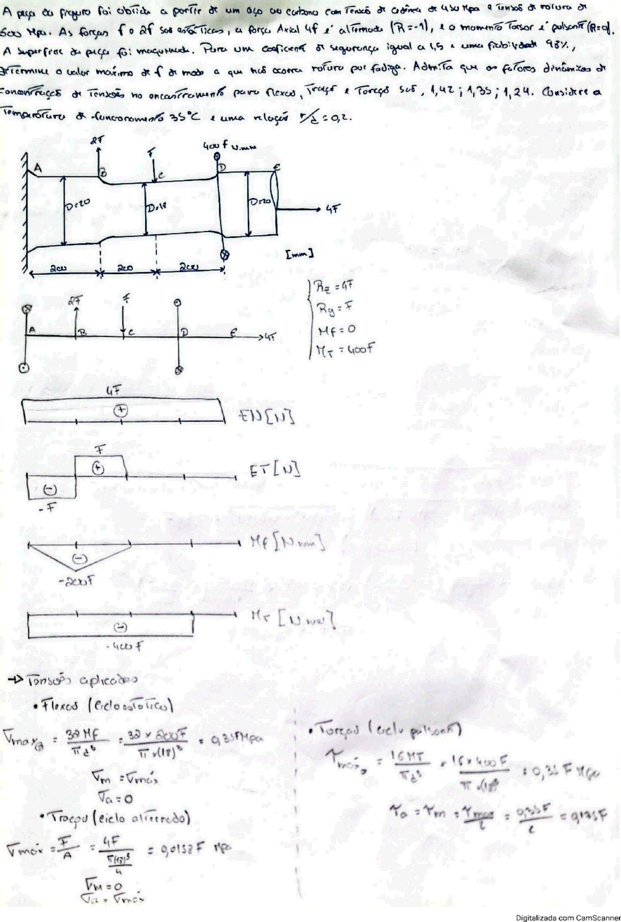 A peça da figura foi obtida a partir de um aço ao carbono com Tensão de cedência de 450 Mpa e Tensão de rotura de
600 Mpa. As forças F e 2F são estáticas, a força Axial 4F é alternada (R=-1), e o momento Torsor é pulsante (R=0).
A superfície da peça foi maquinada. Para um coeficiente de segurança igual a 1,5 e uma fiabilidade 98%,
determine o valor máximo de F de modo a que não ocorra rotura por fadiga. Admita que os fatores dinâmicos de
concentração de Tensão no encastramento para flexão, Tração e Torção são, 1,42; 1,35; 1,24. Considere a
Temperatura de funcionamento 35°C e uma relação r/d = 0,2.
2F F 400F N.mm
A B C D E
D=20 D=18 D=20 4F
200 200 200 [mm]
2F F
A B C D E 4F
Rz = 4F
Ry = F
Mf = 0
MT = 400F
4F
(+) EN [N]
F
(+) ET [N]
(-)
-F
(-) Mf [N.mm]
-200F
(-) MT [N.mm]
-400F
→ Tensões aplicadas
• Flexão (ciclo estático)
σmax = 32 Mf / πd³ = 32 × 200F / π×(18)³ = 0,35F Mpa
σm = σmáx
σa = 0
• Tração (ciclo alternado)
σmáx = F/A = 4F / = 0,0157F Mpa
σm = 0
σa = σmáx
• Torção (ciclo pulsante)
τmáx = 16MT / πd³ = 16 × 400F / π×(18)³ = 0,35 F Mpa
τa = τm = τmax/2 = 0,35F/2 = 0,175F
Digitalizada com CamScanner